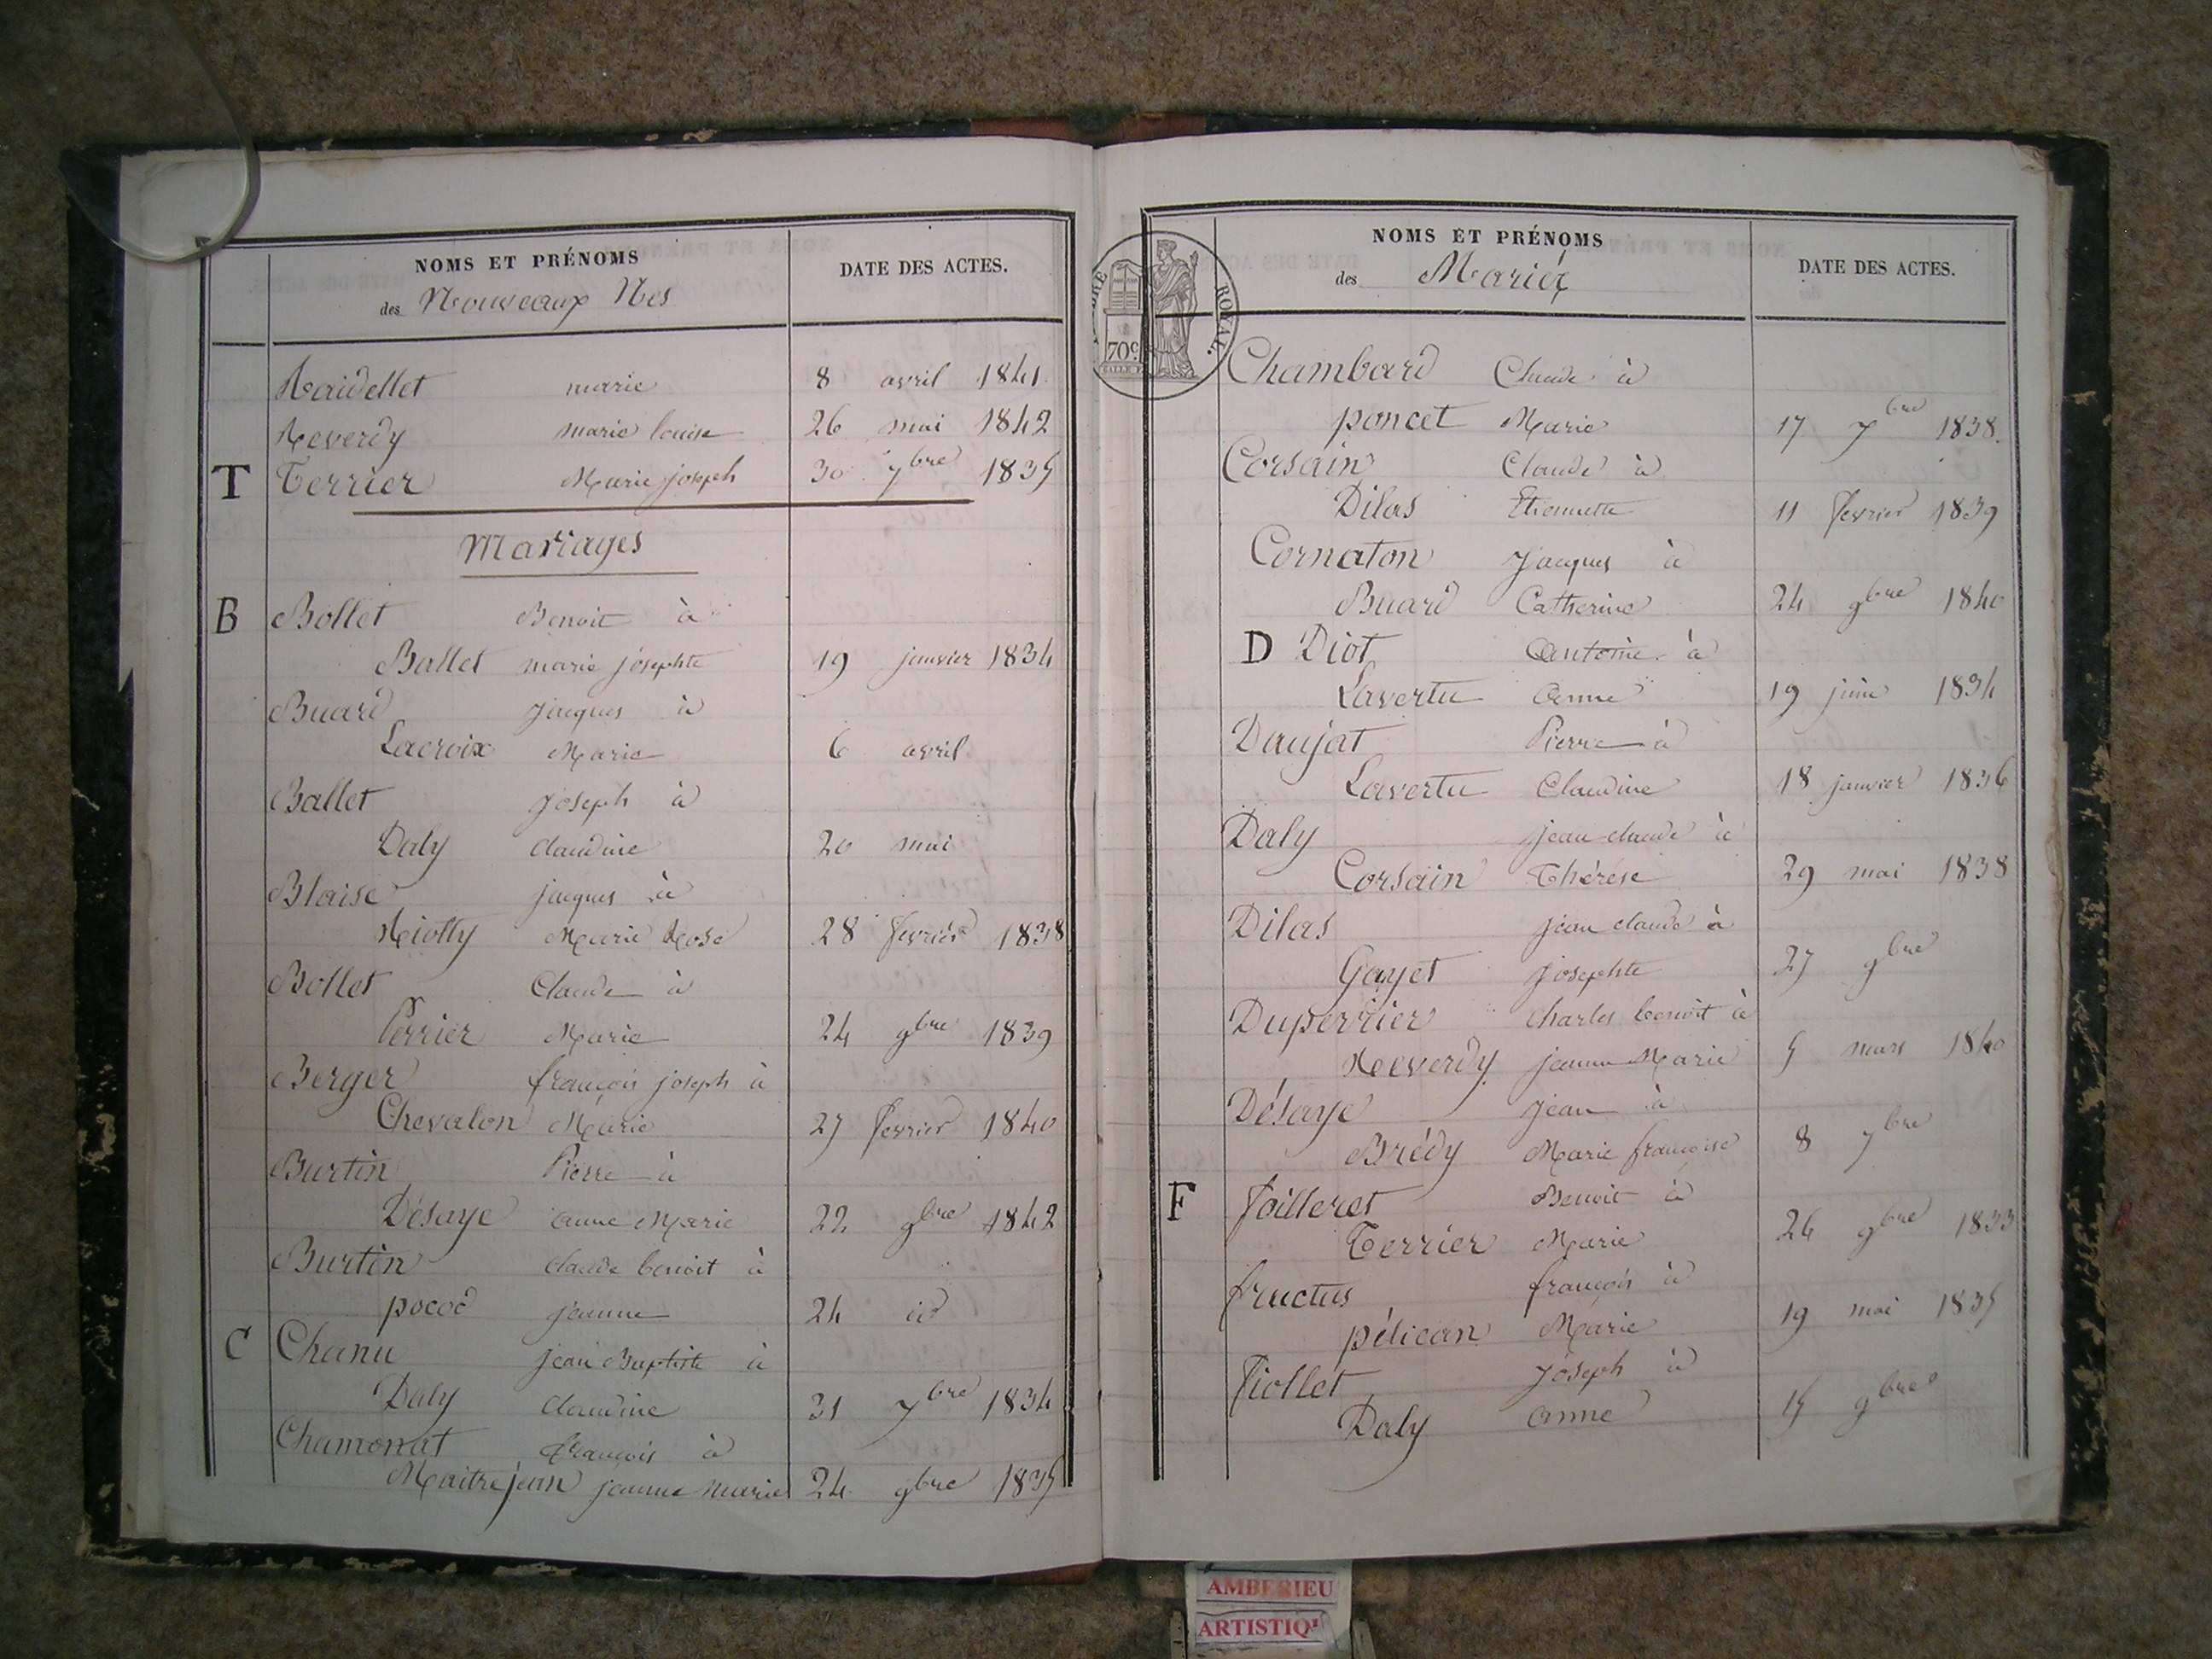 NOMS ET PRÉNOMS
des Nouveaux Nés
DATE DES ACTES.
Raidellet marie 8 avril 1841
Reverdy marie louise 26 mai 1842
T Terrier Marie joseph 30 7bre 1835
Mariages
B Bollet Benoit à
Ballet marie josephte 19 janvier 1834
Buard jacques à
Lacroix Marie 6 avril
Ballet joseph à
Daly claudine 20 mai
Blaise jacques à
Riotty Marie Rose 28 fevrier 1838
Bollet Claude à
Perrier Marie 24 9bre 1839
Berger françois joseph à
Chevalon Marie 27 fevrier 1840
Burtin Pierre à
Désaye anne Marie 22 9bre 1842
Burtin claude benoit à
pocod jeanne 24 id
C Chanu jean Baptiste à
Daly claudine 31 7bre 1834
Chamonat françois à
Maitrejean jeanne marie 24 9bre 1835
TIMBRE ROYAL.
70c
NOMS ET PRÉNOMS
des Mariéz
DATE DES ACTES.
Chambard Claude à
poncet Marie 17 7bre 1838.
Corsain Claude à
Dilas Etiennette 11 fevrier 1839
Cornaton jacques à
Buard Catherine 24 9bre 1840
D Diot Antoine à
Lavertu anne 19 juin 1834
Daujat Pierre à
Lavertu Claudine 18 janvier 1836
Daly jean claude à
Corsain Thérèse 29 mai 1838
Dilas jean claude à
Gayet josephte 27 9bre
Duperrier charles benoit à
Reverdy jeanne Marie 5 mars 1840
Désaye jean à
Brédy Marie françoise 8 7bre
F Foilleret Benoit à
Terrier Marie 26 9bre 1833
fructus françois à
pélican Marie 19 mai 1835
Fiollet joseph à
Daly anne 15 9bre
AMBERIEU
ARTISTIQ